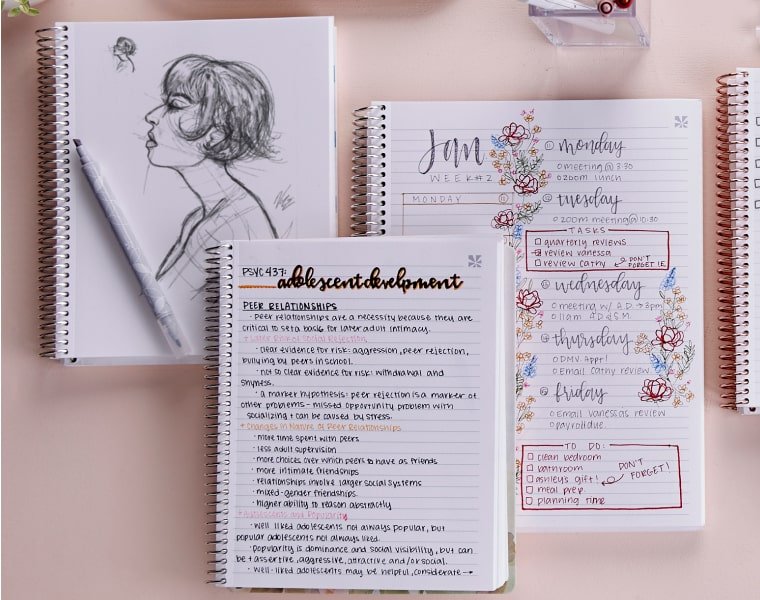 PSYC 437: adolescent develpment
PEER RELATIONSHIPS
· Peer relationships are a necessity because they are
critical to set a basis for later adult intimacy.
+ Later Risk of Social Rejection
· clear evidence for risk: aggression, peer rejection,
bullying by peers in school.
· not so clear evidence for risk: withdrawal and
shyness.
· a marker hypothesis: peer rejection is a marker of
other problems - missed opportunity problem with
socializing + can be caused by stress.
+ Changes in Nature of Peer Relationships
· more time spent with peers
· less adult supervision
· more choices over which peers to have as friends
· more intimate friendships
· relationships involve larger social systems
· mixed-gender friendships.
· higher ability to reason abstractly
+ Adolescents and Popularity
· well liked adolescents not always popular, but
popular adolescents not always liked.
· popularity is dominance and social visibility, but can
be + assertive, aggressive, attractive and/or social.
· well-liked adolescents may be helpful, considerate →
Jan
WEEK #2
MONDAY
monday
meeting @ 3:30
zoom lunch
tuesday
zoom meeting @ 10:30
TASKS
quarterly reviews
review vanessa
review cathy
DON'T
FORGET
wednesday
meeting w/ A.D. → 3pm
11am
thursday
DMV Appt!
Email cathy review
friday
email vanessa's review
payroll due
TO DO:
clean bedroom
bathroom
ashley's gift!
meal prep
planning time
DON'T
FORGET!